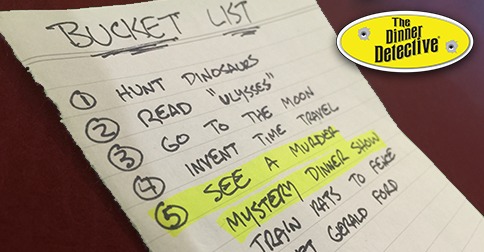 BUCKET LIST
1 HUNT DINOSAURS
2 READ "ULYSSES"
3 GO TO THE MOON
4 INVENT TIME TRAVEL
5 SEE A MURDER
MYSTERY DINNER SHOW
TRAIN RATS TO FENCE
GERALD FORD
The
Dinner
Detective®